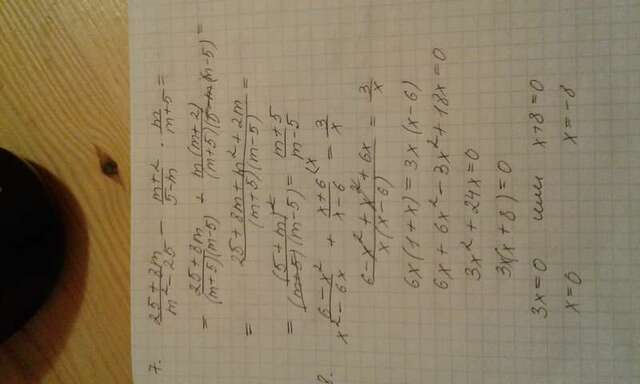 7. (25+8m)/(m²-25) - (m+2)/(5-m) · m/(m+5) =
= (25+8m)/((m+5)(m-5)) + m(m+2)/((m+5)(m-5)) =
= (25+8m+m²+2m)/((m+5)(m-5)) =
= (5+m)²/((m+5)(m-5)) = (m+5)/(m-5)
8. (6-x²)/(x²-6x) + (x+6)/(x-6) = 3/x
(6-x²+x²+6x)/(x(x-6)) = 3/x
6x(1+x) = 3x(x-6)
6x+6x²-3x²+18x=0
3x²+24x=0
3x(x+8)=0
3x=0 или x+8=0
x=0 x=-8